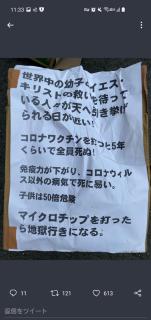 11:33
世界中の幼子、イエス・
キリストの救いを待って
いる人々が天へ引き挙げ
られる日が近い!
コロナワクチンを打つと5年
くらいで全員死ぬ!
免疫力が下がり、コロナウィル
ス以外の病気で死に易い。
子供は50倍危険
マイクロチップを打った
ら地獄行きになる。
11 121 613
返信をツイート